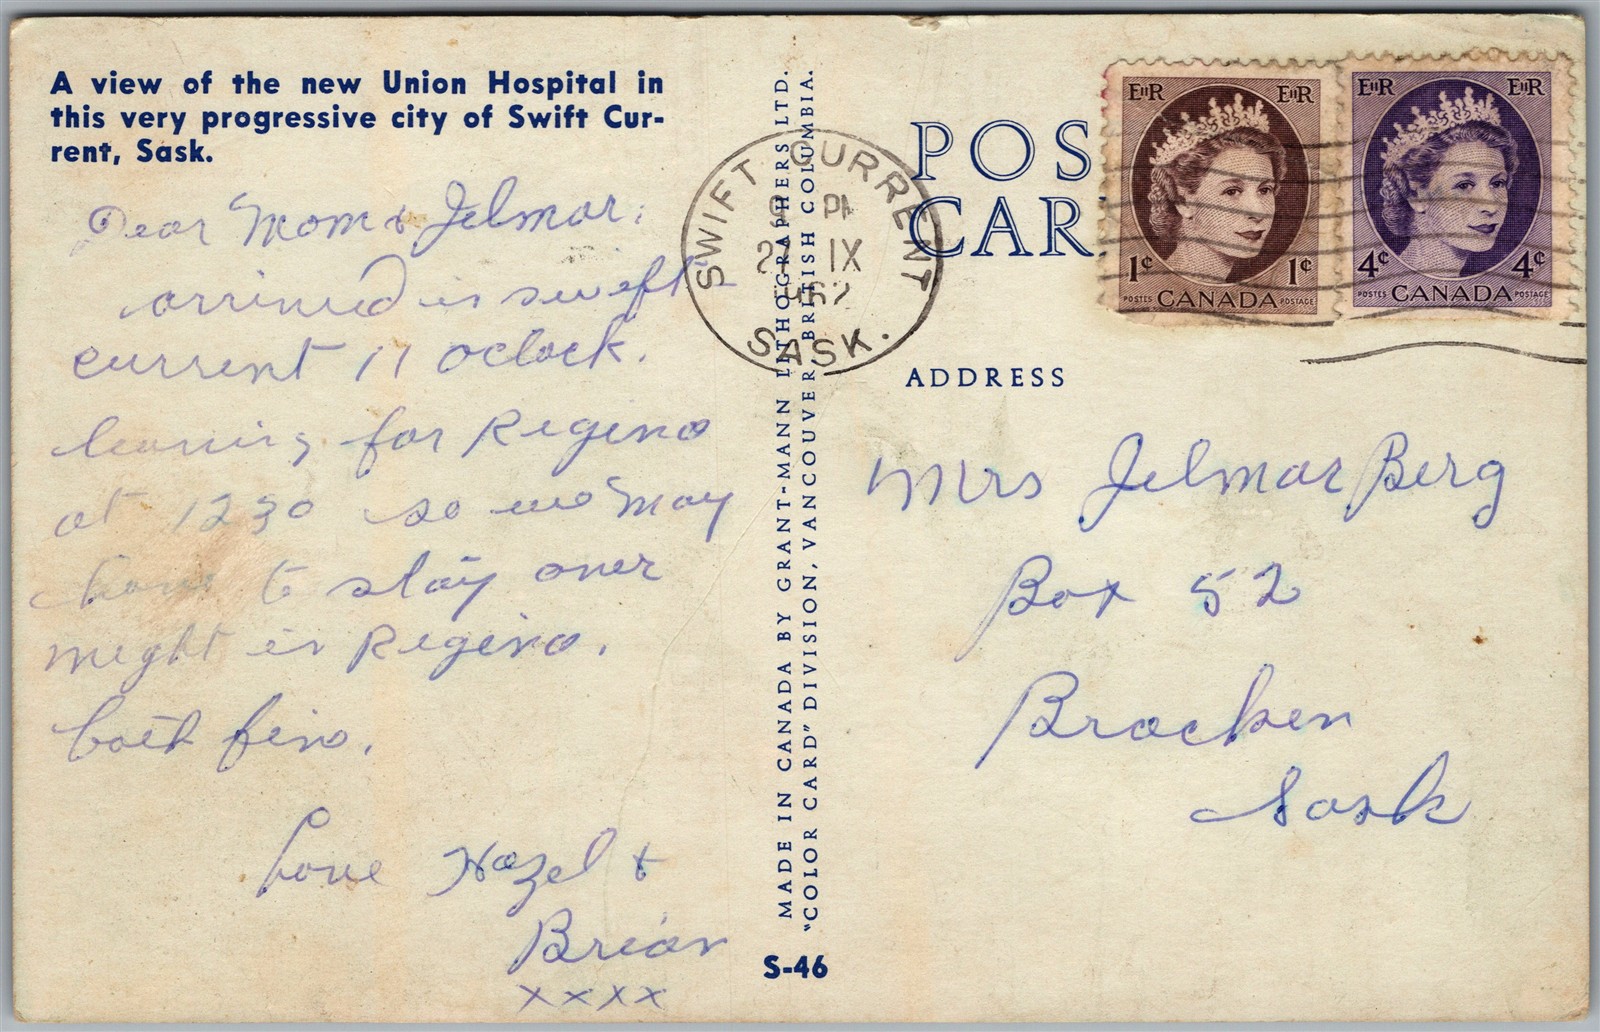 A view of the new Union Hospital in
this very progressive city of Swift Cur-
rent, Sask.
Dear Mom & Jelmar:
arrived in swift
current 11 oclock.
leaving for Regina
at 1230 so we may
have to stay over
night in Regina.
both fine.
Love Hazel &
Brian
xxxx
MADE IN CANADA BY GRANT-MANN LITHOGRAPHERS LTD.
"COLOR CARD" DIVISION, VANCOUVER, BRITISH COLUMBIA.
S-46
SWIFT CURRENT
PM
IX
SASK.
POS
CAR
EIIR EIIR
1¢ 1¢
POSTES CANADA POSTAGE
EIIR EIIR
4¢ 4¢
POSTES CANADA POSTAGE
ADDRESS
Mrs Jelmar Berg
Box 52
Bracken
Sask